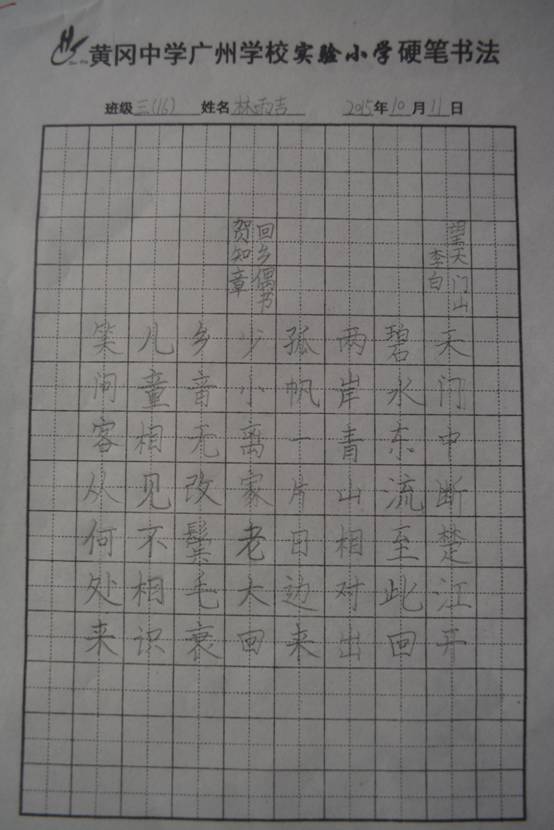 黄冈中学广州学校实验小学硬笔书法
班级三(16) 姓名林雨吉 2015年10月11日
望天门山
李白
天门中断楚江开
碧水东流至此回
两岸青山相对出
孤帆一片日边来
回乡偶书
贺知章
少小离家老大回
乡音无改鬓毛衰
儿童相见不相识
笑问客从何处来